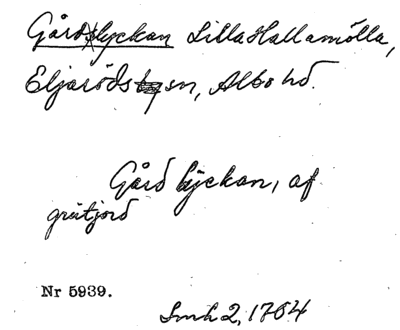 Gårdslyckan Lilla Hallamölla,
Eljaröds sn, Albo hd.
Gård lyckan, af
grutjord
Nr 5939.
Smh 2, 1764